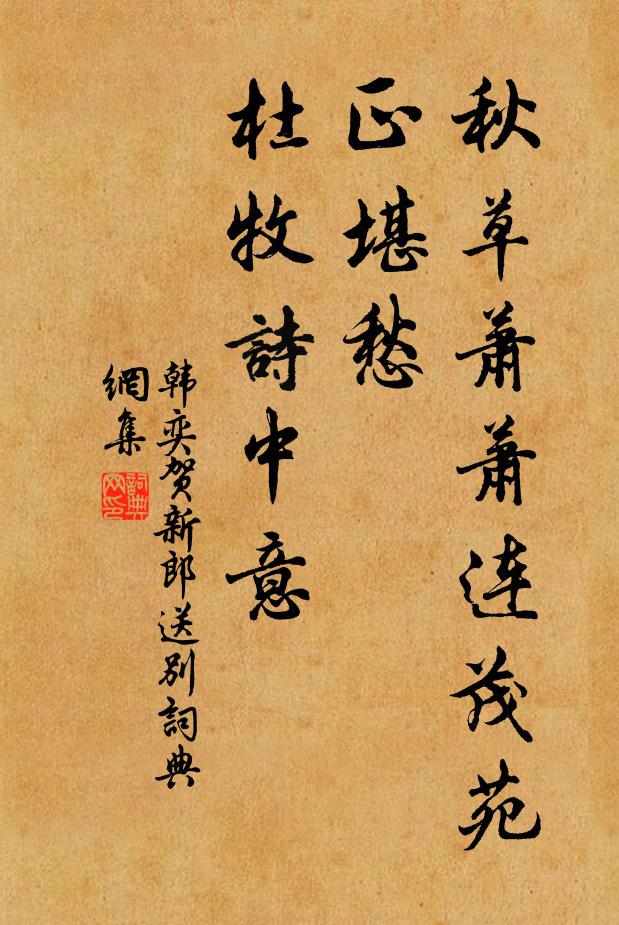 秋草萧萧连茂苑
正堪愁
杜牧詩中意
韩奕贺新郎送别詞典
網集
詞典
网印